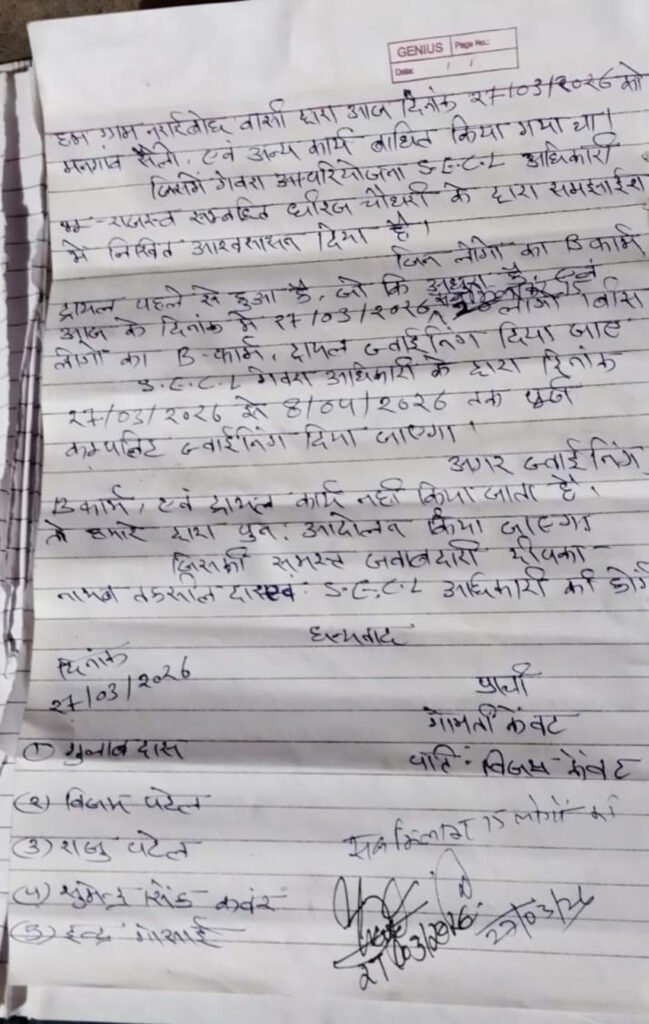 GENIUS Page No.:
Date: / /
हम ग्राम नराईबोध वासी द्वारा आज दिनांक 27/03/2026 को
मनगांव सैलो, एवं अन्य कार्य बाधित किया गया था।
जिसमें गेवरा परियोजना S.E.C.L अधिकारी
भू-राजस्व सम्बंधित धीरज चौधरी के द्वारा समझाईश
में लिखित आश्वासन दिया है।
जिन लोगो का B फार्म
पहले से हुआ है, जो कि अधुरा है, एवं
आज के दिनांक में 27/03/2026
लोगो का B-फार्म, ज्वाईनिंग दिया जाए
S.E.C.L गेवरा अधिकारी के द्वारा दिनांक
27/03/2026 से 8/04/2026 तक पूर्ण
कम्पलिट ज्वाईनिंग दिया जाएगा।
अगर ज्वाईनिंग
B फार्म, एवं कार्य नहीं किया जाता है।
तो हमारे द्वारा पुन: आंदोलन किया जाएगा
जिसकी समस्त जवाबदारी दीपका
S.E.C.L अधिकारी की होगी
धन्यवाद
दिनांक
27/03/2026
प्रार्थी
गोमती केंवट
पति: विजय केंवट
① गुलाब दास
(2) विजय पटेल
(3) राजु पटेल
(4) सिंह कवंर
(5) इन्द्र गोसाई
15 लोगों का
27/03/2026
27/03/26